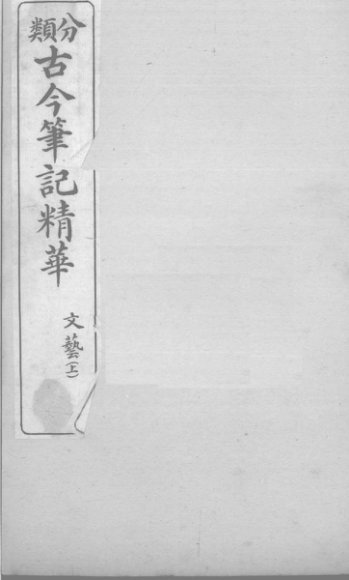 分類
古今筆記精華
文藝(上)